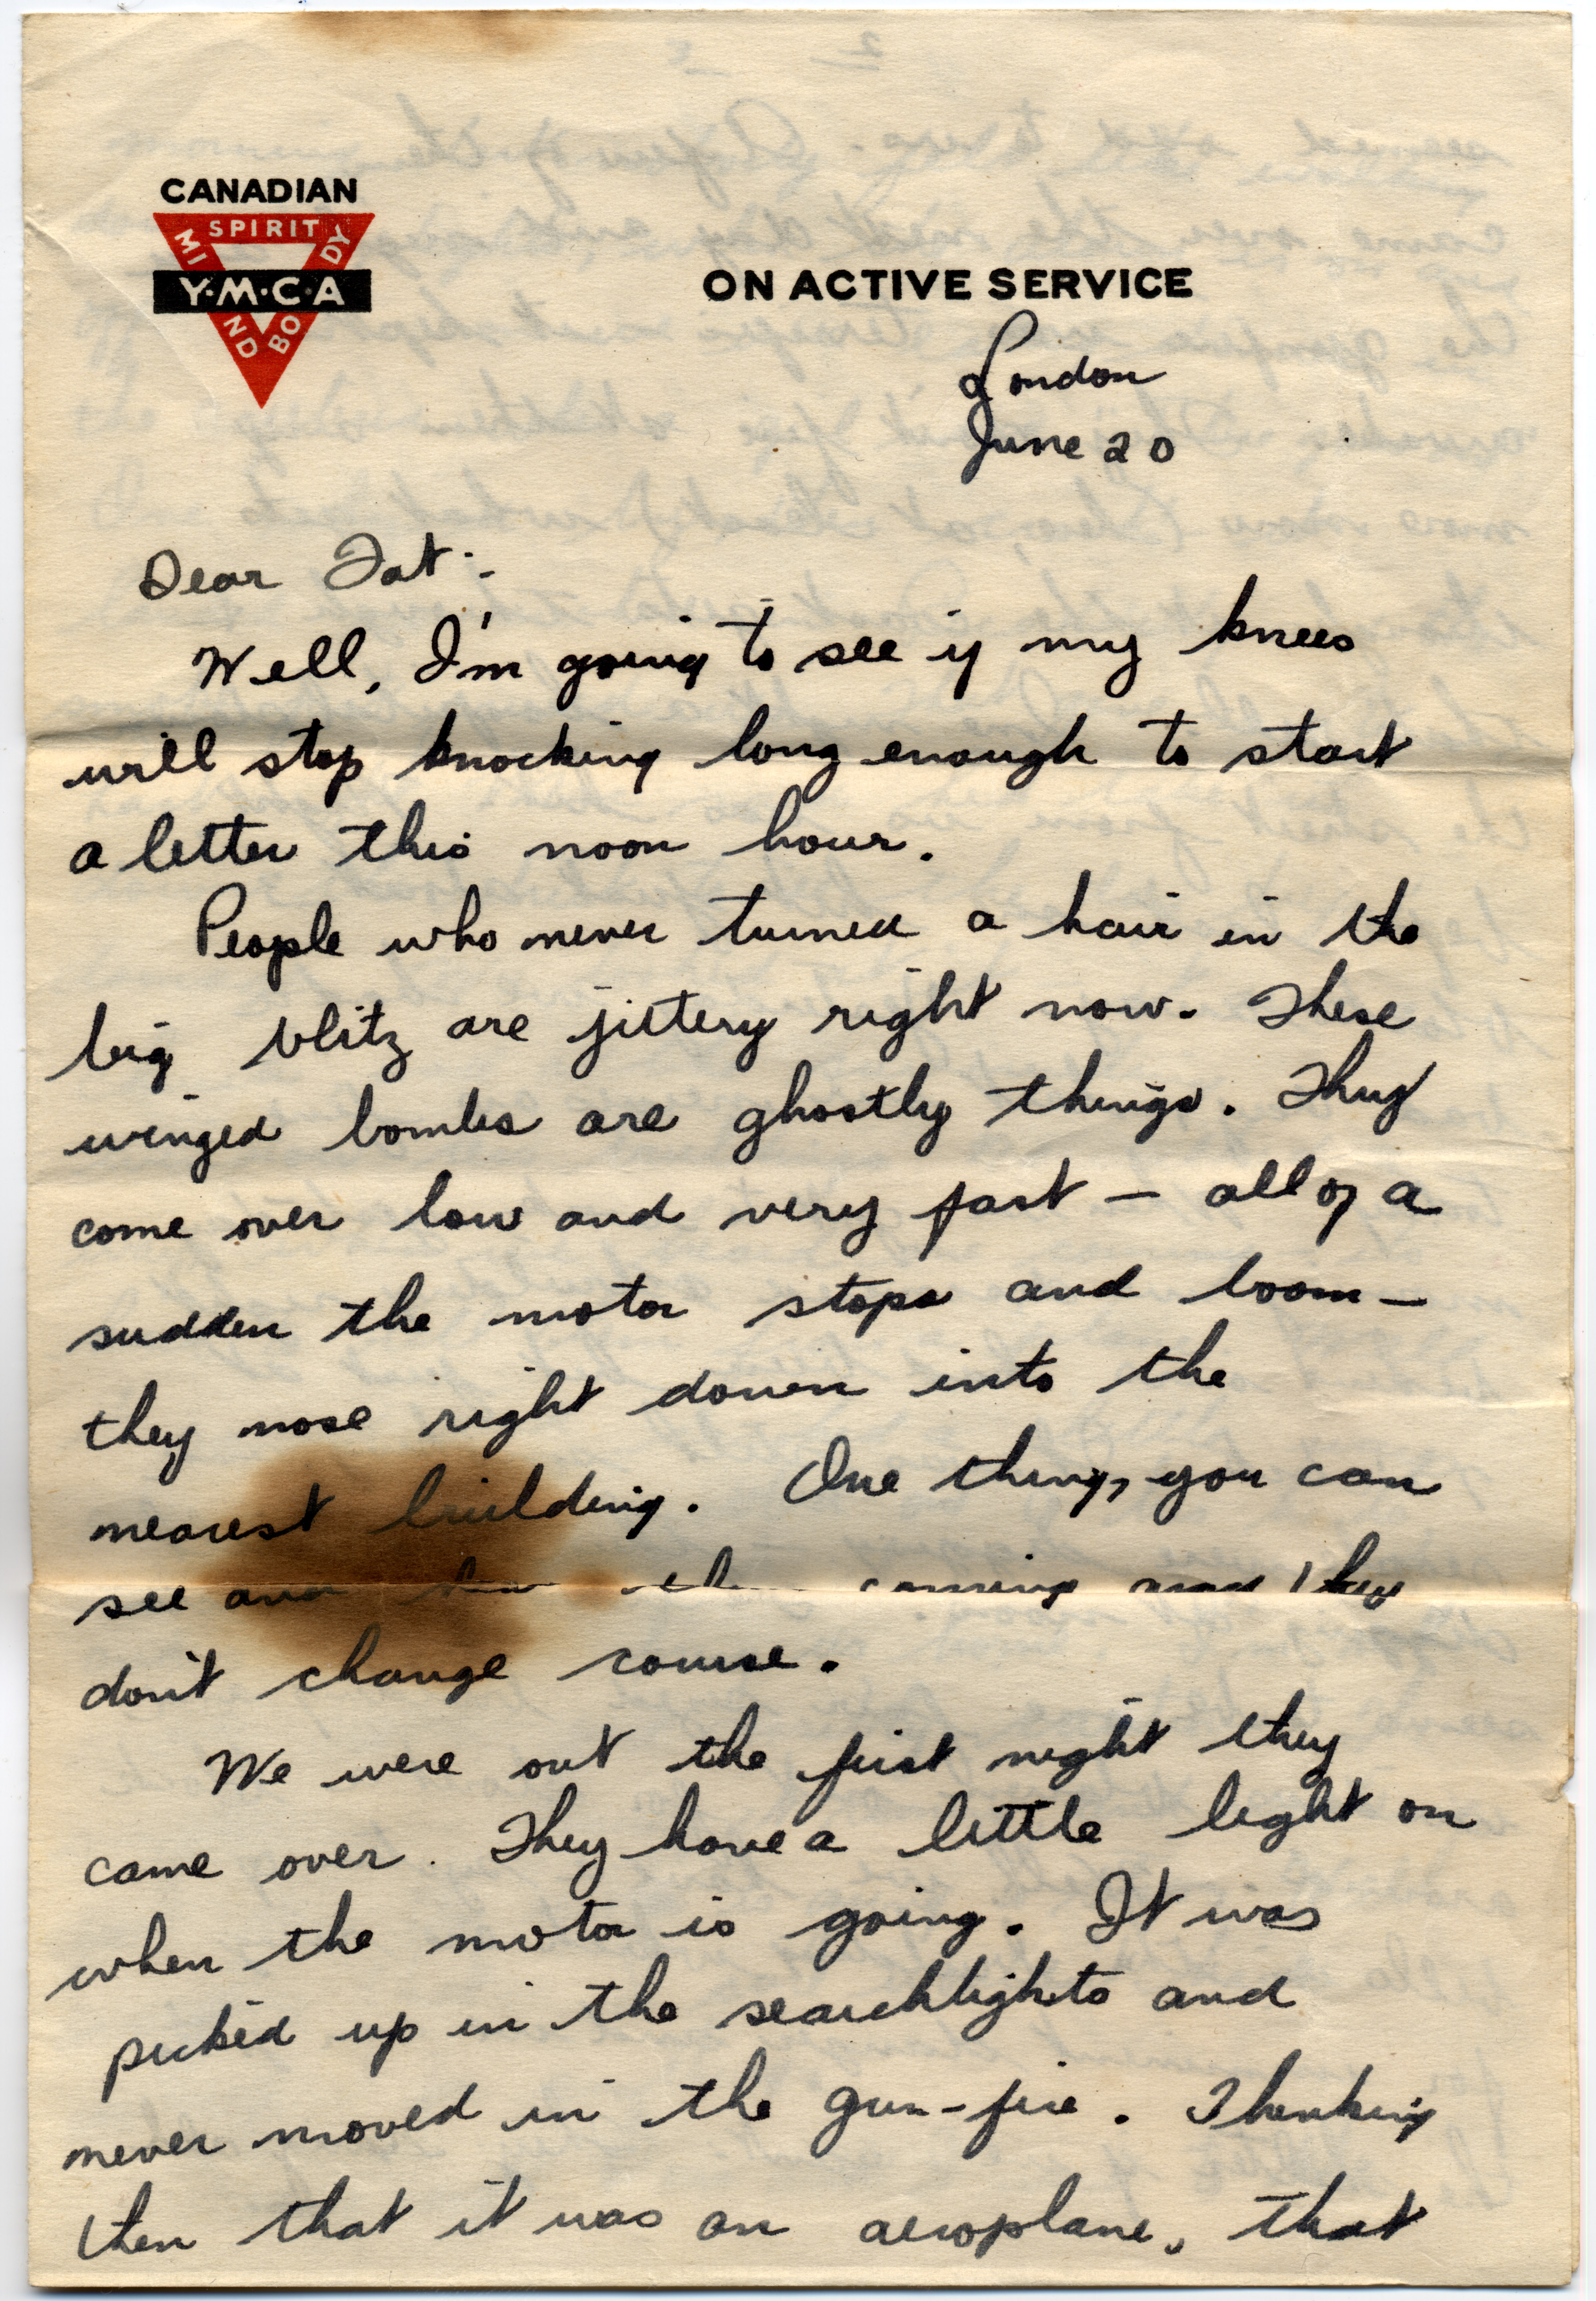 CANADIAN
SPIRIT
MIND
BODY
Y·M·C·A
ON ACTIVE SERVICE
London
June 20
Dear Fat:-
Well, I'm going to see if my knees
will stop knocking long enough to start
a letter this noon hour.
People who never turned a hair in the
big blitz are jittery right now. These
winged bombs are ghostly things. They
come over low and very fast — all of a
sudden the motor stops and boom —
they nose right down into the
nearest building. One thing, you can
see and coming and they
don't change course.
We were out the first night they
came over. They have a little light on
when the motor is going. It was
picked up in the searchlights and
never moved in the gun-fire. Thinking
then that it was an aeroplane, that